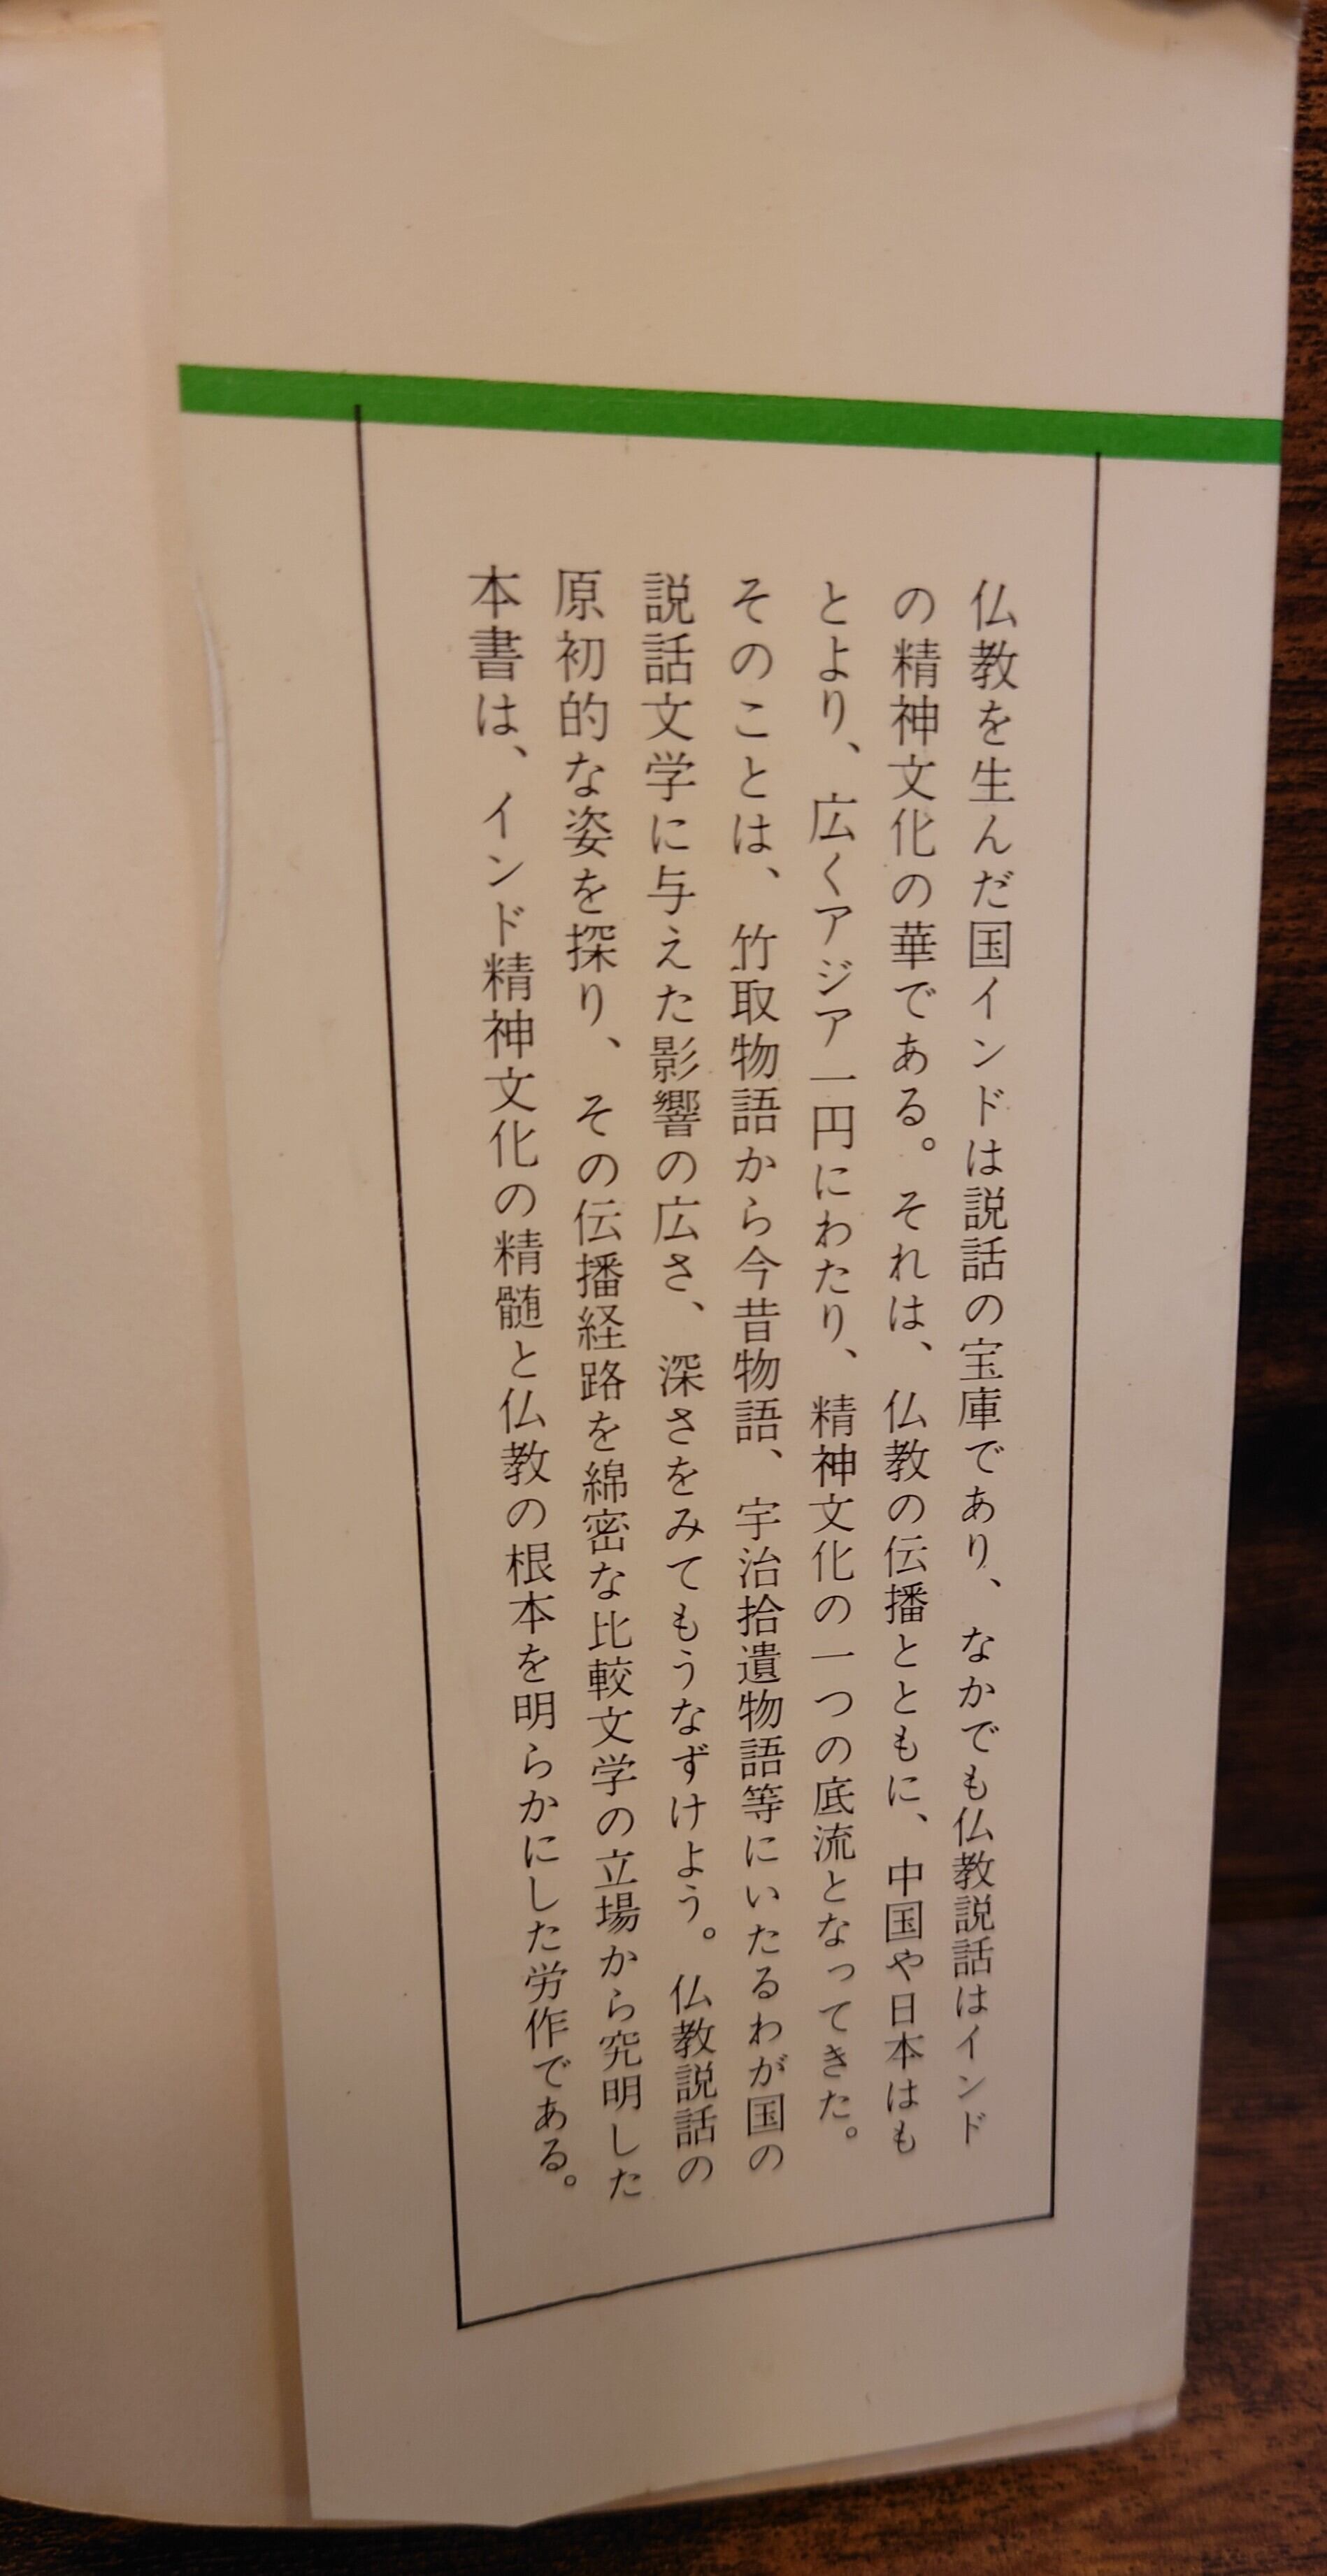 仏教を生んだ国インドは説話の宝庫であり、なかでも仏教説話はインド
の精神文化の華である。それは、仏教の伝播とともに、中国や日本はも
とより、広くアジア一円にわたり、精神文化の一つの底流となってきた。
そのことは、竹取物語から今昔物語、宇治拾遺物語等にいたるわが国の
説話文学に与えた影響の広さ、深さをみてもうなずけよう。仏教説話の
原初的な姿を探り、その伝播経路を綿密な比較文学の立場から究明した
本書は、インド精神文化の精髄と仏教の根本を明らかにした労作である。